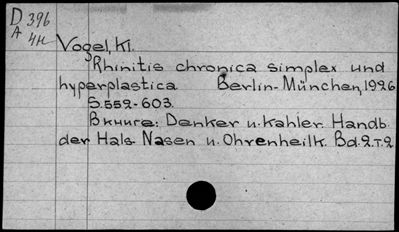 D 396
A 4н
Vogel, Kl.
Rhinitis chronica simplex und
hyperplastica Berlin-München, 1926
S. 552-603.
В книге: Denker u. Kahler. Handb.
der Hals- Nasen u. Ohrenheilk. Bd. 2. т. 2